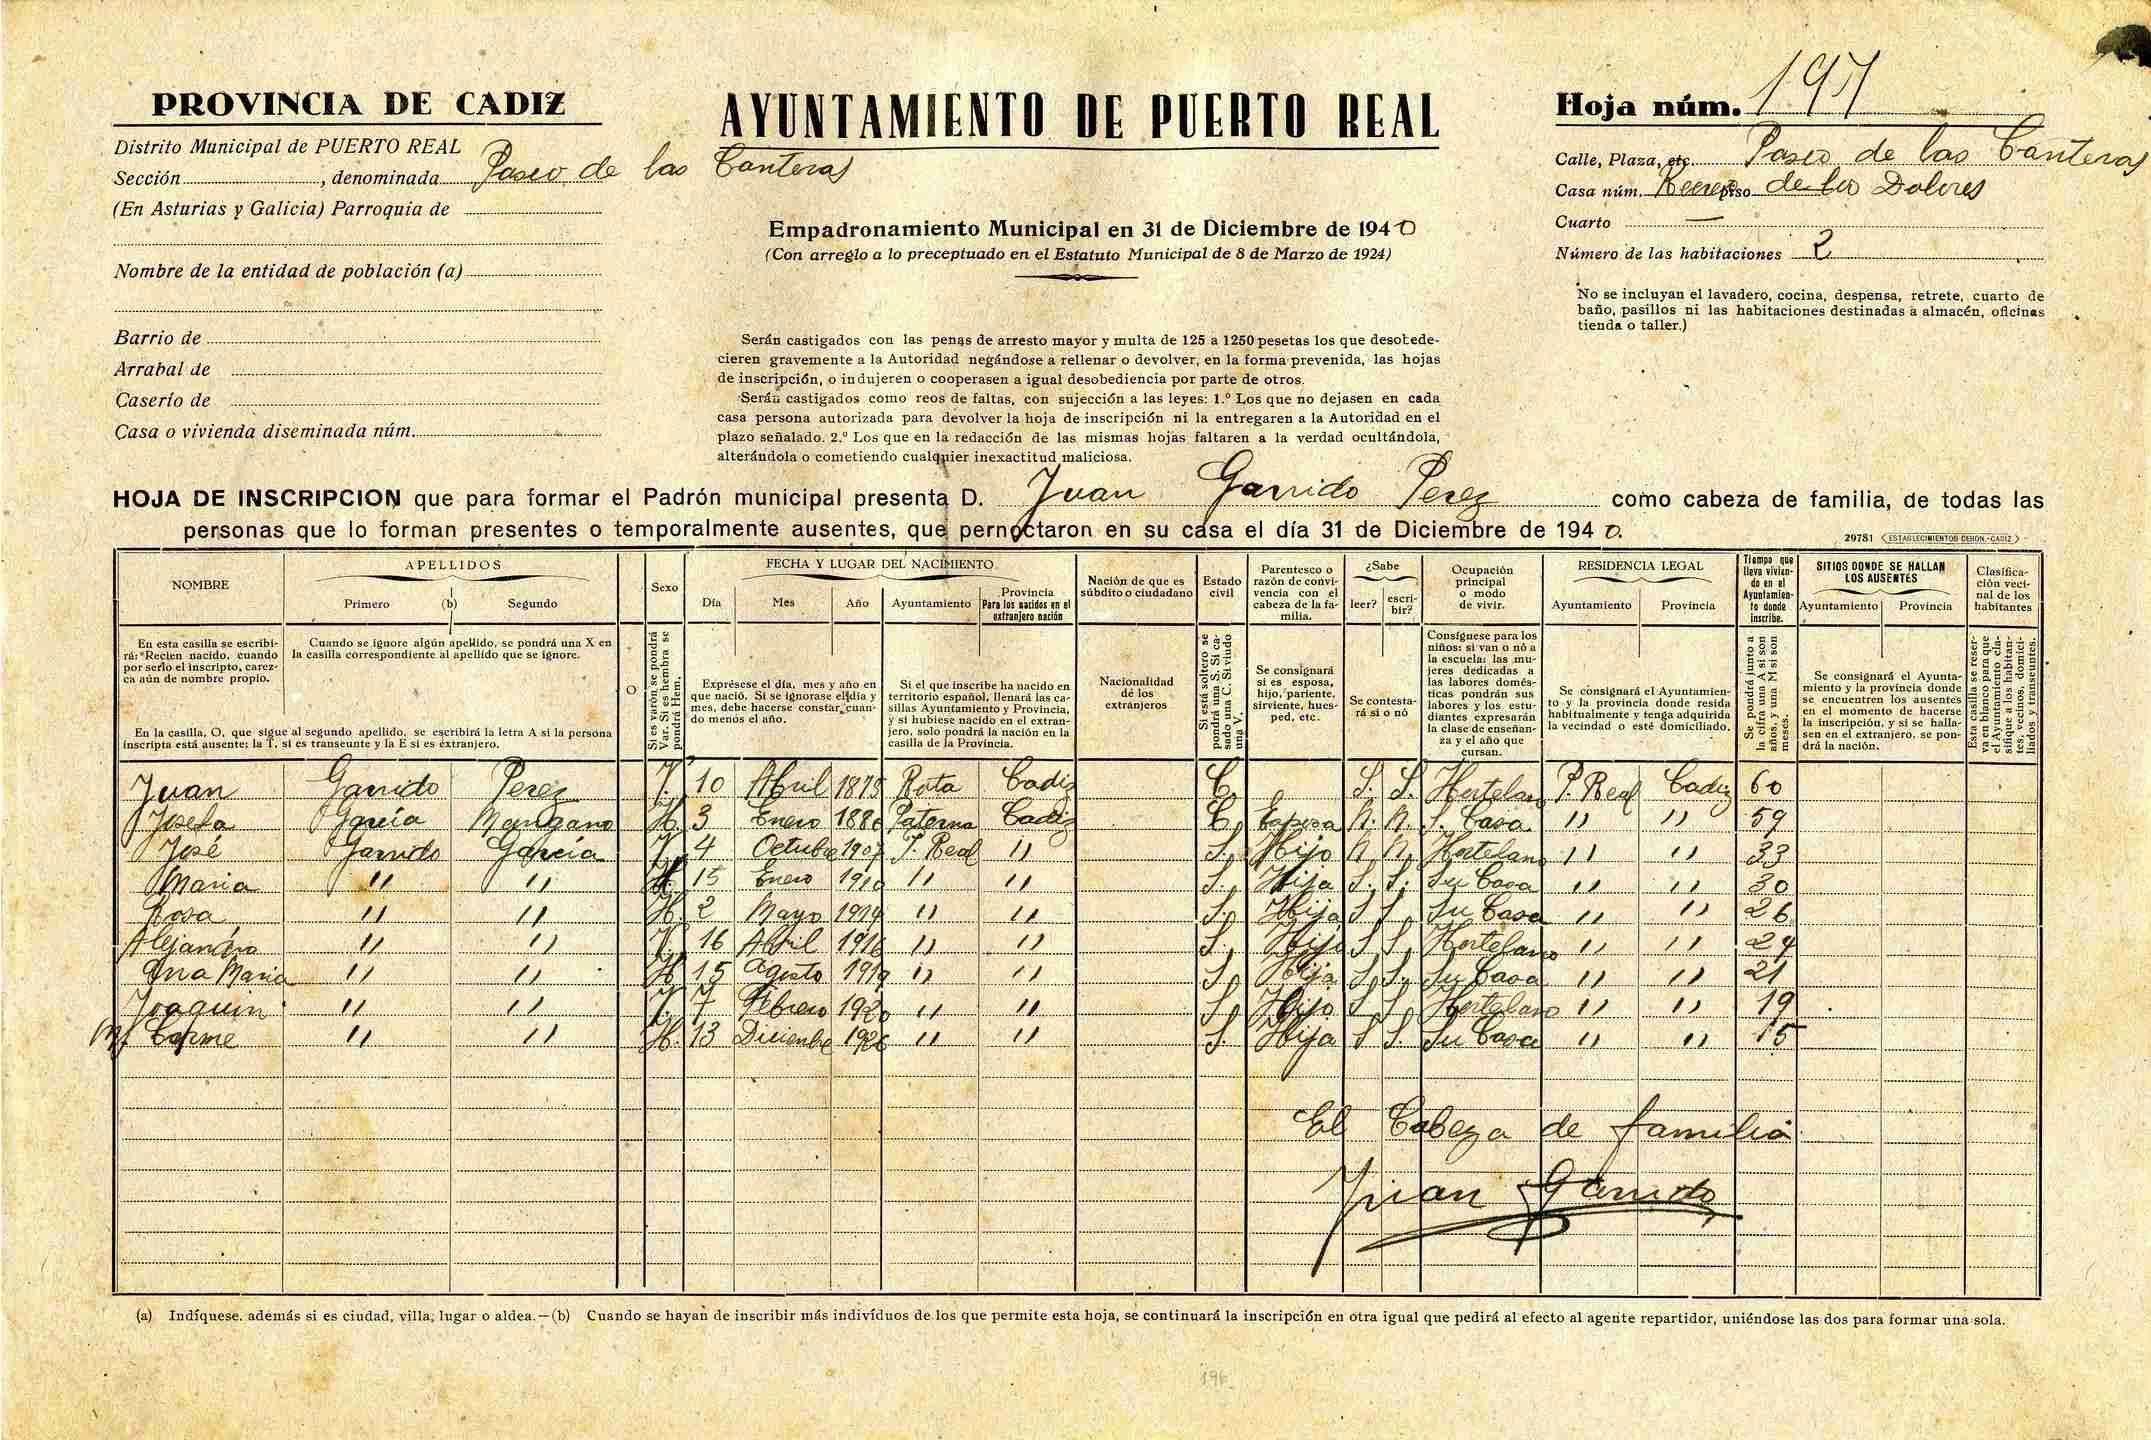 PROVINCIA DE CADIZ
Distrito Municipal de PUERTO REAL
Sección , denominada Paseo de las Canteras
(En Asturias y Galicia) Parroquia de
Nombre de la entidad de población (a)
Barrio de
Arrabal de
Caserío de
Casa o vivienda diseminada núm.
AYUNTAMIENTO DE PUERTO REAL
Empadronamiento Municipal en 31 de Diciembre de 1940
(Con arreglo a lo preceptuado en el Estatuto Municipal de 8 de Marzo de 1924)
Serán castigados con las penas de arresto mayor y multa de 125 a 1250 pesetas los que desobede-
cieren gravemente a la Autoridad negándose a rellenar o devolver, en la forma prevenida, las hojas
de inscripción, o indujeren o cooperasen a igual desobediencia por parte de otros.
Serán castigados como reos de faltas, con sujección a las leyes: 1.º Los que no dejasen en cada
casa persona autorizada para devolver la hoja de inscripción ni la entregaren a la Autoridad en el
plazo señalado. 2.º Los que en la redacción de las mismas hojas faltaren a la verdad ocultándola,
alterándola o cometiendo cualquier inexactitud maliciosa.
Hoja núm. 197
Calle, Plaza, etc. Paseo de las Canteras
Casa núm. Recreo piso de los Dolores
Cuarto —
Número de las habitaciones 2
No se incluyan el lavadero, cocina, despensa, retrete, cuarto de
baño, pasillos ni las habitaciones destinadas a almacén, oficinas
tienda o taller.)
HOJA DE INSCRIPCION que para formar el Padrón municipal presenta D. Juan Garrido Perez como cabeza de familia, de todas las
personas que lo forman presentes o temporalmente ausentes, que pernoctaron en su casa el día 31 de Diciembre de 1940.
29781 ESTABLECIMIENTOS CERON.-CADIZ
NOMBRE
APELLIDOS
Primero (b) Segundo
Sexo
FECHA Y LUGAR DEL NACIMIENTO
Día Mes Año Ayuntamiento
Provincia
Para los nacidos en el
extranjero nación
Nación de que es
súbdito o ciudadano
Estado
civil
Parentesco o
razón de convi-
vencia con el
cabeza de la fa-
milia.
¿Sabe
leer? escri-
bir?
Ocupación
principal
o modo
de vivir.
RESIDENCIA LEGAL
Ayuntamiento Provincia
Tiempo que
lleva vivien-
do en el
Ayuntamien-
to donde
inscribe.
SITIOS DONDE SE HALLAN
LOS AUSENTES
Ayuntamiento Provincia
Clasifica-
ción veci-
nal de los
habitantes
En esta casilla se escribi-
rá: "Recien nacido, cuando
por serlo el inscripto, carez-
ca aún de nombre propio.
Cuando se ignore algún apellido, se pondrá una X en
la casilla correspondiente al apellido que se ignore.
En la casilla, O, que sigue al segundo apellido, se escribirá la letra A si la persona
inscripta está ausente; la T, si es transeunte y la E si es extranjero.
O
Si es varón se pondrá
Var. Si es hembra se
pondrá Hem.
Exprésese el día, mes y año en
que nació. Si se ignorase el día y
mes, debe hacerse constar cuan-
do menos el año.
Si el que inscribe ha nacido en
territorio español, llenará las ca-
sillas Ayuntamiento y Provincia,
y si hubiese nacido en el extran-
jero, solo pondrá la nación en la
casilla de la Provincia.
Nacionalidad
dé los
extranjeros
Si está soltero se
pondrá una S. Si ca-
sado una C. Si viudo
una V.
Se consignará
si es esposa,
hijo, pariente,
sirviente, hues-
ped, etc.
Se contesta-
rá si o nó
Consígnese para los
niños: si van o nó a
la escuela; las mu-
jeres dedicadas a
las labores domés-
ticas pondrán sus
labores y los estu-
diantes expresarán
la clase de enseñan-
za y el año que
cursan.
Se consignará el Ayuntamien-
to y la provincia donde resida
habitualmente y tenga adquirida
la vecindad o esté domiciliado.
Se pondrá junto a
la cifra una A si son
años, y una M si son
meses.
Se consignará el Ayunta-
miento y la provincia donde
se encuentren los ausentes
en el momento de hacerse
la inscripción, y si se halla-
sen en el extranjero, se pon-
drá la nación.
Esta casilla se reser-
va en blanco para que
el Ayuntamiento cla-
sifique a los habitan-
tes, vecinos, domici-
liados y transeuntes.
Juan Garrido Perez V. 10 Abril 1875 Rota Cadiz C. S. S. Hortelano P. Real Cadiz 60
Josefa Garcia Manzano H. 3 Enero 1880 Paterna Cadiz C. Esposa N. N. S. Casa " " 59
José Garrido Garcia V. 4 Octubre 1907 P. Real " S. Hijo N N. Hortelano " " 33
Maria " " H. 15 Enero 1910 " " S. Hija S. S. Su Casa " " 30
Rosa " " H. 2 Mayo 1914 " " S. Hija S S. Su Casa " " 26
Alejandro " " V. 16 Abril 1916 " " S. Hijo S S. Hortelano " " 24
Ana Maria " " H. 15 Agosto 1919 " " S. Hija S S. Su Casa " " 21
Joaquin " " V. 7 Febrero 1920 " " S. Hijo S S Hortelano " " 19
Mª Carme " " H. 13 Diciembre 1926 " " S. Hija S S. Su Casa " " 15
El Cabeza de familia
Juan Garrido
(a) Indíquese. además si es ciudad, villa, lugar o aldea.—(b) Cuando se hayan de inscribir más indivíduos de los que permite esta hoja, se continuará la inscripción en otra igual que pedirá al efecto al agente repartidor, uniéndose las dos para formar una sola.
196